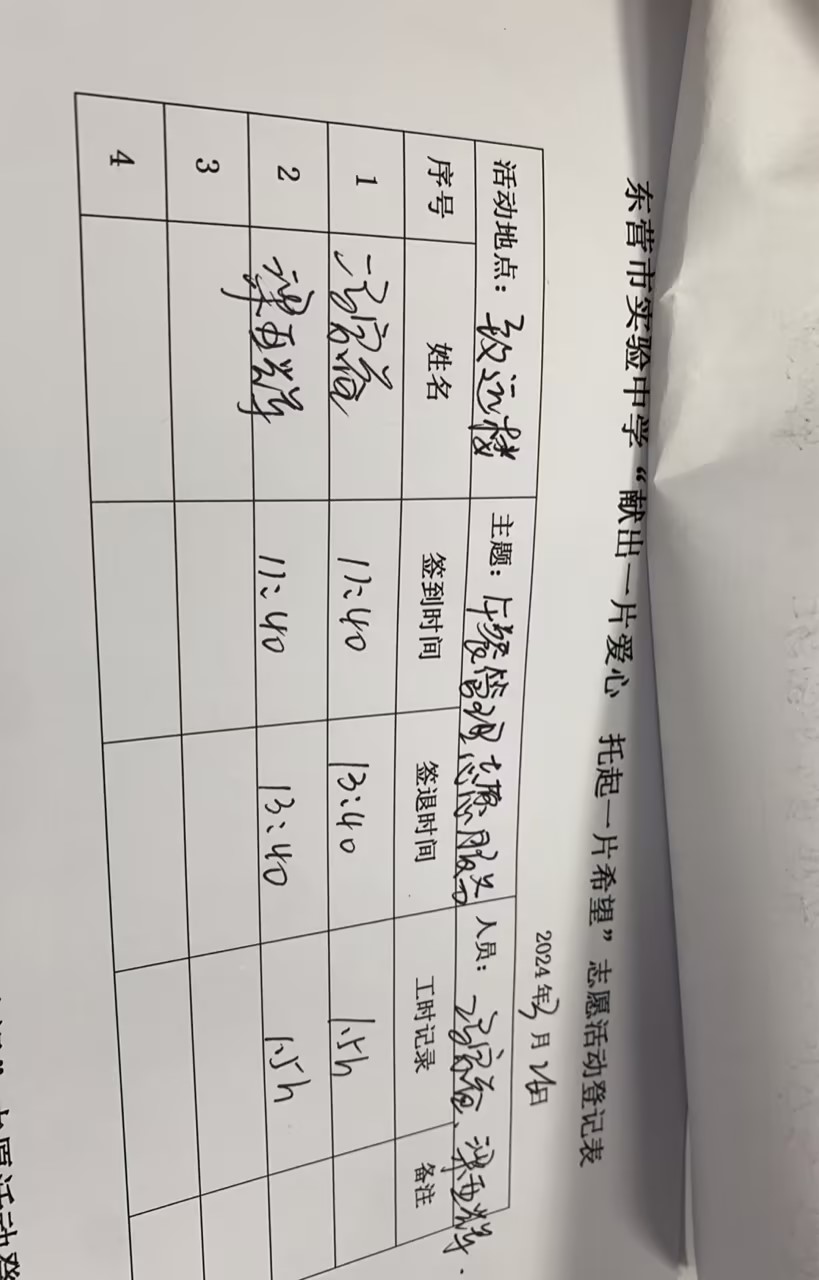 东营市实验中学“献出一片爱心 托起一片希望”志愿活动登记表
2024年3月26日
活动地点：致远楼 主题：午餐管理志愿服务 人员：
序号 姓名 签到时间 签退时间 工时记录 备注
1 12:40 13:40 1.5h
2 12:40 13:40 1.5h
3
4